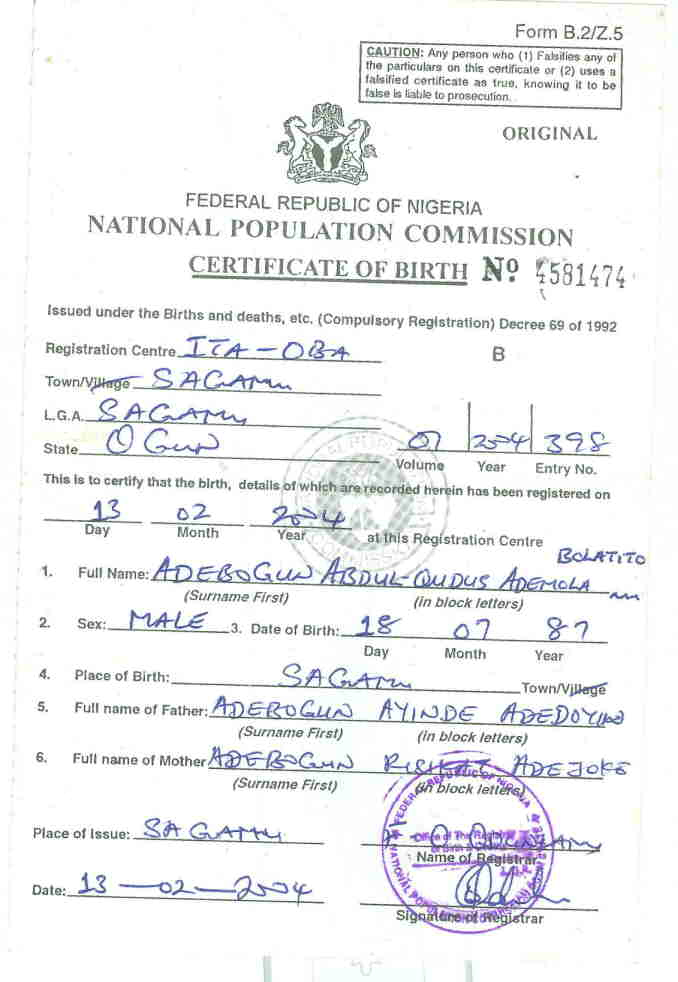 Form B.2/Z.5
CAUTION: Any person who (1) Falsifies any of
the particulars on this certificate or (2) uses a
falsified certificate as true, knowing it to be
false is liable to prosecution.
ORIGINAL
FEDERAL REPUBLIC OF NIGERIA
NATIONAL POPULATION COMMISSION
CERTIFICATE OF BIRTH Nº 4581474
Issued under the Births and deaths, etc. (Compulsory Registration) Decree 69 of 1992
Registration Centre ITA-OBA B
Town/Village SAGAMU
L.G.A. SAGAMU
State OGUN 07 2004 398
Volume Year Entry No.
This is to certify that the birth, details of which are recorded herein has been registered on
13 02 2004
Day Month Year at this Registration Centre
BOLATITO
1. Full Name: ADEBOGUN ABDUL-QUDUS ADEMOLA
(Surname First) (in block letters)
2. Sex: MALE 3. Date of Birth: 18 07 87
Day Month Year
4. Place of Birth: SAGAMU Town/Village
5. Full name of Father: ADEBOGUN AYINDE ADEDOYIN
(Surname First) (in block letters)
6. Full name of Mother ADEBOGUN RISIKAT ADEJOKE
(Surname First) (in block letters)
Place of Issue: SAGAMU
Name of Registrar
Date: 13-02-2004
Signature of Registrar